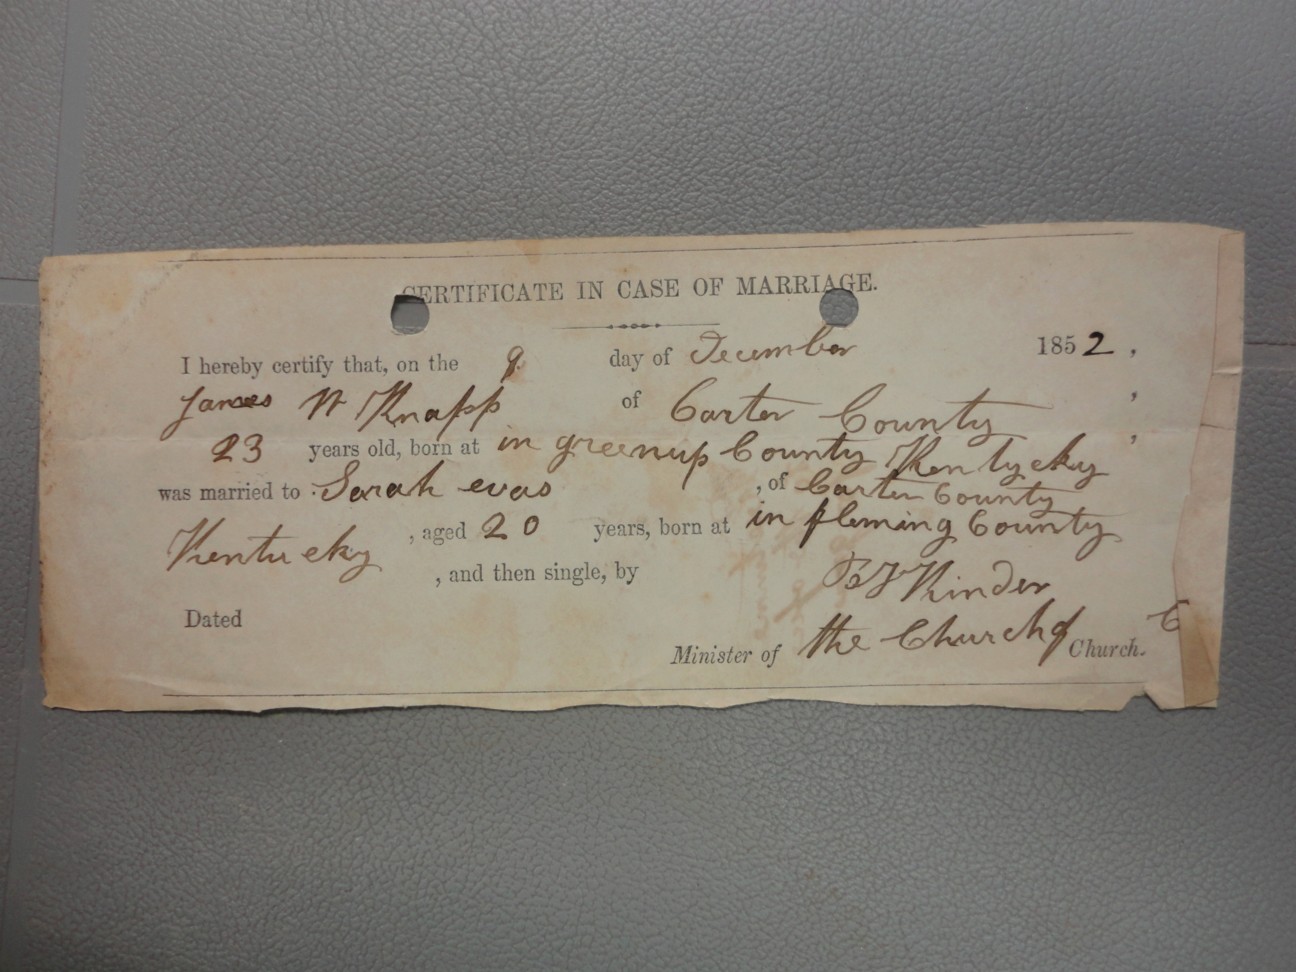 CERTIFICATE IN CASE OF MARRIAGE.
I hereby certify that, on the 9 day of December 1852,
James W Knapp of Carter County,
23 years old, born at in greenup County Kentycky,
was married to Sarah evas, of Carter County
Kentucky, aged 20 years, born at in fleming County
, and then single, by B F Kinder
Dated
Minister of the Church of C Church.